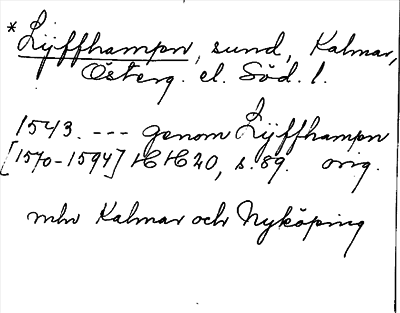 *Lÿffhampn, sund, Kalmar,
Österg. el. Söd. l.
1543. --- genom Lÿffhampn
[1570-1594] HH 20, s. 89. orig.
mlv Kalmar och Nyköping